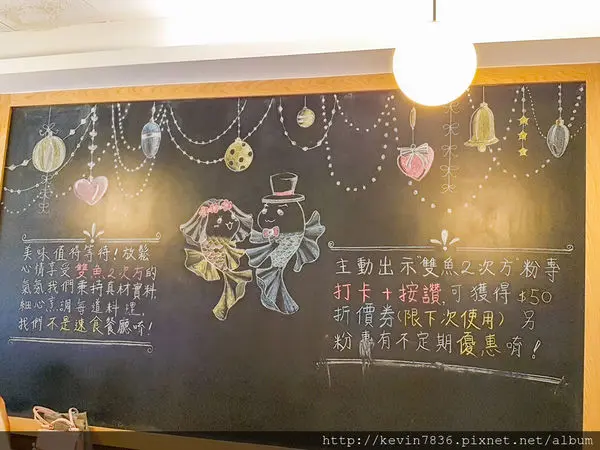 美味值得等待!放鬆
心情享受雙魚2次方的
氣氛我們秉持真材實料,
細心烹調每道料理,
我們不是速食餐廳唷!
主動出示"雙魚2次方"粉專
打卡+按讚,可獲得$50
折價券(限下次使用)另
粉專有不定期優惠唷!
http://kevin7836.pixnet.net/album